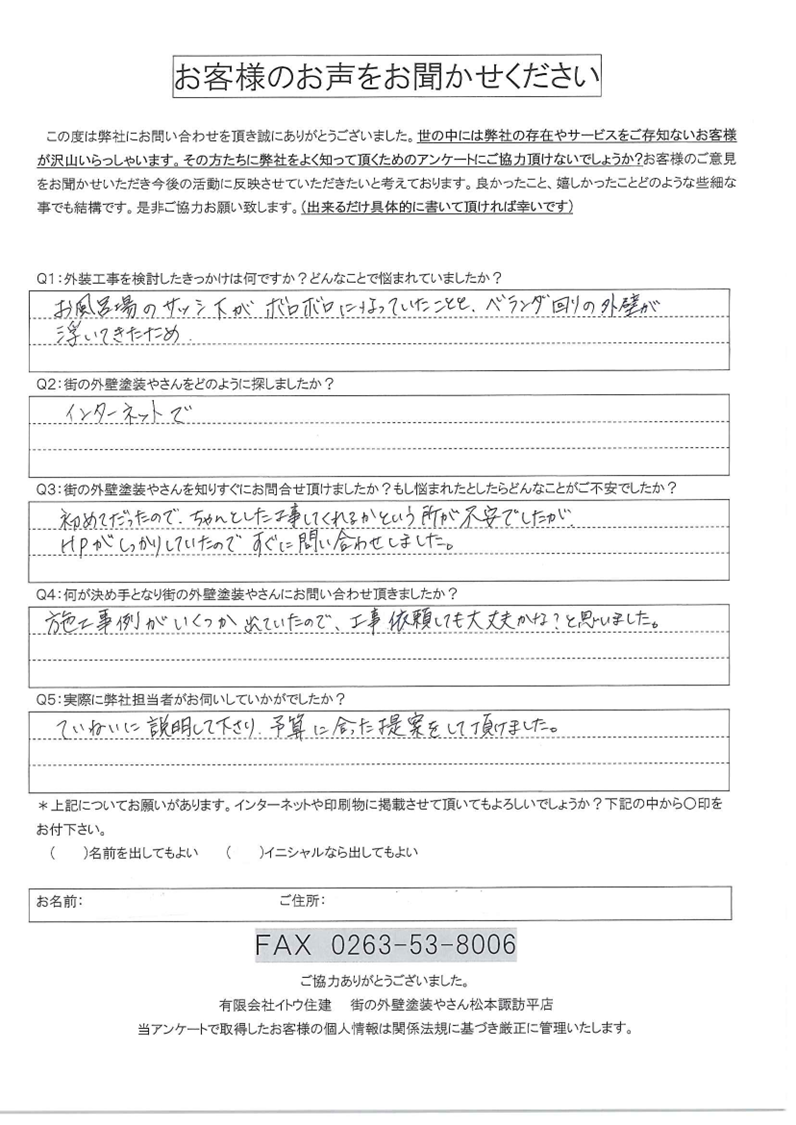 お客様のお声をお聞かせください
この度は弊社にお問い合わせを頂き誠にありがとうございました。世の中には弊社の存在やサービスをご存知ないお客様
が沢山いらっしゃいます。その方たちに弊社をよく知って頂くためのアンケートにご協力頂けないでしょうか?お客様のご意見
をお聞かせいただき今後の活動に反映させていただきたいと考えております。良かったこと、嬉しかったことどのような些細な
事でも結構です。是非ご協力お願い致します。(出来るだけ具体的に書いて頂ければ幸いです)
Q1:外装工事を検討したきっかけは何ですか?どんなことで悩まれていましたか?
お風呂場のサッシ下がボロボロになっていたことと、ベランダ回りの外壁が
浮いてきたため.
Q2:街の外壁塗装やさんをどのように探しましたか?
インターネットで
Q3:街の外壁塗装やさんを知りすぐにお問合せ頂けましたか?もし悩まれたとしたらどんなことがご不安でしたか?
初めてだったので、ちゃんとした工事してくれるかという所が不安でしたが
HPがしっかりしていたのですぐに問い合わせしました。
Q4:何が決め手となり街の外壁塗装やさんにお問い合わせ頂きましたか?
施工事例がいくつか出ていたので、工事依頼しても大丈夫かな?と思いました。
Q5:実際に弊社担当者がお伺いしていかがでしたか?
ていねいに説明して下さり、予算に合った提案をして頂けました。
*上記についてお願いがあります。インターネットや印刷物に掲載させて頂いてもよろしいでしょうか?下記の中から〇印を
お付下さい。
( )名前を出してもよい ( )イニシャルなら出してもよい
お名前: ご住所:
FAX 0263-53-8006
ご協力ありがとうございました。
有限会社イトウ住建 街の外壁塗装やさん松本諏訪平店
当アンケートで取得したお客様の個人情報は関係法規に基づき厳正に管理いたします。